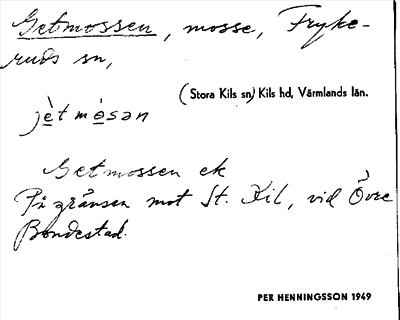 Getmossen, mosse, Fryke-
ruds sn,
(Stora Kils sn) Kils hd, Värmlands län.
jètmòsən
Getmossen ek
På gränsen mot St. Kil, vid Övre
Bondestad.
PER HENNINGSSON 1949